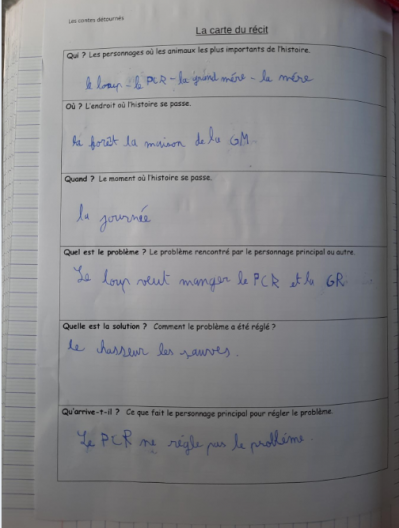 Les contes détournés
La carte du récit
Qui ? Les personnages où les animaux les plus importants de l'histoire.
le loup - le PCR - la grand mére - la mére
Où ? L'endroit où l'histoire se passe.
la forêt la maison de la GM.
Quand ? Le moment où l'histoire se passe.
la journée
Quel est le problème ? Le problème rencontré par le personnage principal ou autre.
Le loup veut manger le PCR et la GR
Quelle est la solution ? Comment le problème a été réglé ?
le chasseur les sauves.
Qu'arrive-t-il ? Ce que fait le personnage principal pour régler le problème.
Le PCR ne régle pas le problème.